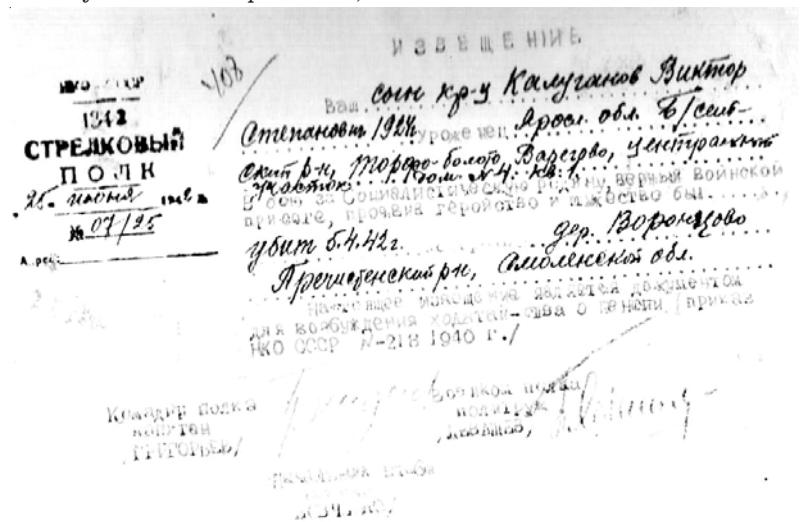 ИЗВЕЩЕНИЕ
НКО СССР
1342
СТРЕЛКОВЫЙ
ПОЛК
25. июня 1942 г.
№ 07/25
Адрес:
408
Ваш сын кр-ц Калуганов Виктор
Степанович 1924 уроженец Яросл. обл. Б/сель-
ский р-н, Торфо-болото, Варегово, центральный
участок. Дом. №4. кв. 1.
В бою за Социалистическую родину, верный воинской
присяге, проявив геройство и мужество был
убит 5.4.42г. дер. Воронцово
Пречистенский р-н, Смоленской обл.
Настоящее извещение является документом
для возбуждения ходатай-ства о пенсии /приказ
НКО СССР №-218 1940 г./
Командир полка
капитан
/ГРИГОРЬЕВ/
Военком полка
политрук
Начальник штаба